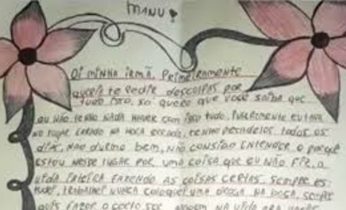 MANU!
Oi MINHA iRMÃ, PRiMEiRAMENTE
QUERO TE PEDIR DESCULPAS POR
TUDO iSSO, SÓ QUERO QUE VOCÊ SAiBA QUE
EU NÃO TENHO NADA HAVER COM iSSO TUDO,
NO LUGAR ERRADO NA HORA ERRADA, TENHO PESADELOS TODOS OS
DiAS, NÃO DURMO BEM, NÃO CONSiGO ENTENDER O PORQUÊ
ESTOU NESSE LUGAR POR UMA COiSA QUE EU NÃO FiZ, A
ViDA iNTEiRA FAZENDO AS COiSAS CERTAS, SEMPRE ES-
TUDEi, TRABALHEi NUNCA COLOQUEi UMA DROGA NA BOCA, SEMPRE
QUiS FAZER O CERTO SER NA ViDA PRA